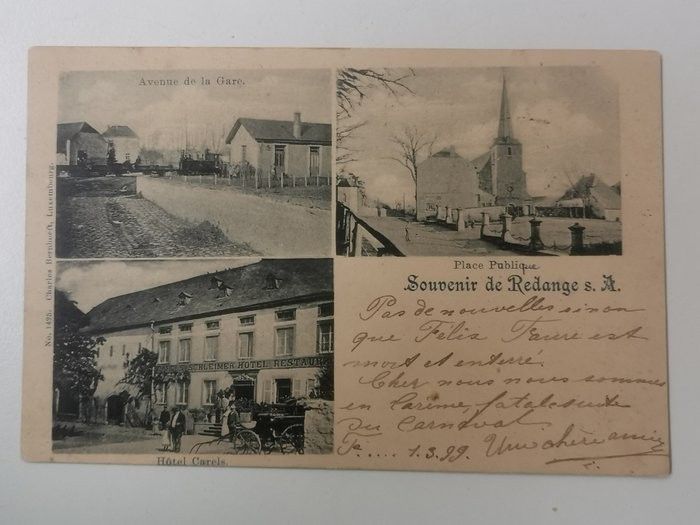 Avenue de la Gare.
No. 1495. Charles Bernhoeft, Luxembourg.
Place Publique
Souvenir de Redange s. A.
SCHLEIMER HOTEL RESTAU
Hôtel Carels.
Pas de nouvelles sinon
que Félix Faure est
mort et enterré.
Chez nous nous sommes
en Carême, fatale suite
du Carnaval
1.3.99. Une chère amie